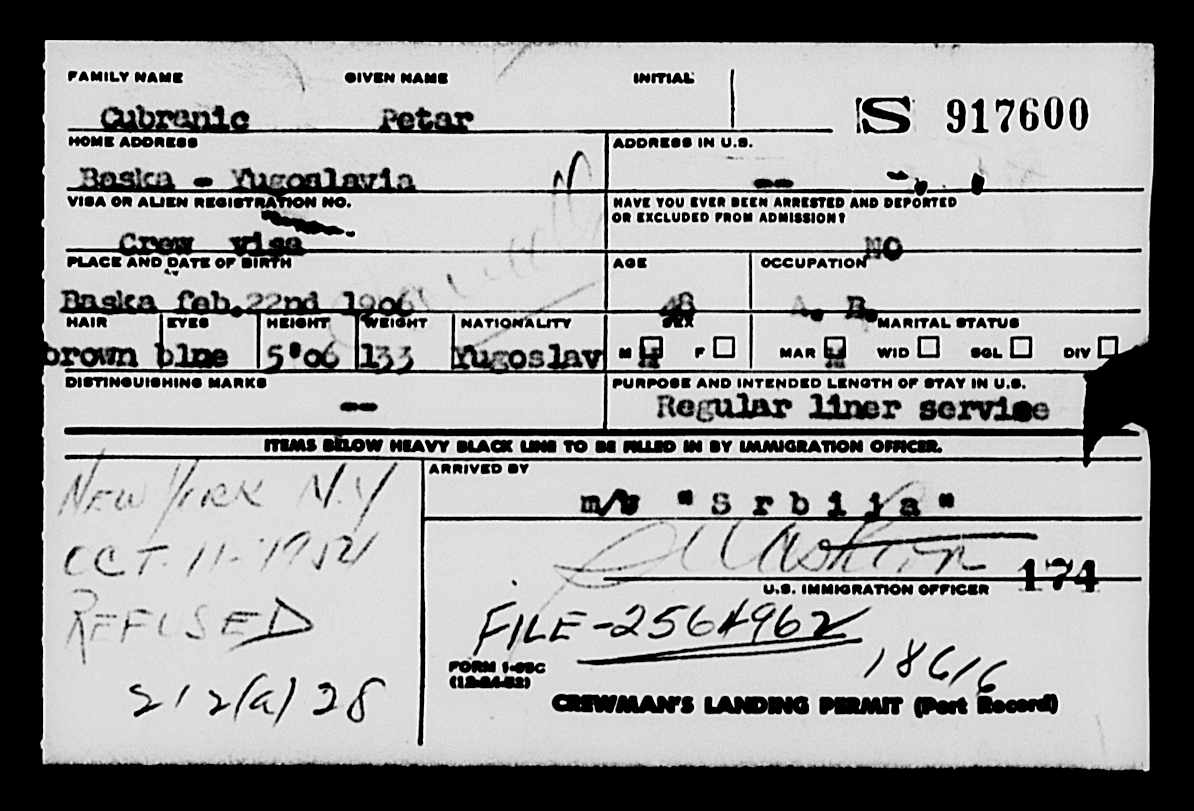 FAMILY NAME GIVEN NAME INITIAL
Cubranic Petar S 917600
HOME ADDRESS ADDRESS IN U.S.
Baska - Yugoslavia --
VISA OR ALIEN REGISTRATION NO. HAVE YOU EVER BEEN ARRESTED AND DEPORTED
OR EXCLUDED FROM ADMISSION?
Crew visa NO
PLACE AND DATE OF BIRTH AGE OCCUPATION
Baska feb.22nd 1906 48 A. B.
HAIR EYES HEIGHT WEIGHT NATIONALITY SEX MARITAL STATUS
brown blue 5'06 133 Yugoslav M F MAR WID SGL DIV
DISTINGUISHING MARKS PURPOSE AND INTENDED LENGTH OF STAY IN U.S.
-- Regular liner servise
ITEMS BELOW HEAVY BLACK LINE TO BE FILLED IN BY IMMIGRATION OFFICER.
ARRIVED BY
NEW YORK N.Y m/v "Srbija"
OCT-11-
174
U.S. IMMIGRATION OFFICER
REFUSED FILE-
212(a)28 18616
FORM I-95C
CREWMAN'S LANDING PERMIT (Port Record)